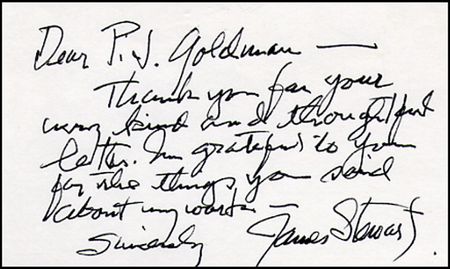 Dear P.J. Goldman —
Thank you for your
very kind and thoughtful
letter. I'm grateful to you
for the things you said
about my work —
Sincerely James Stewart.